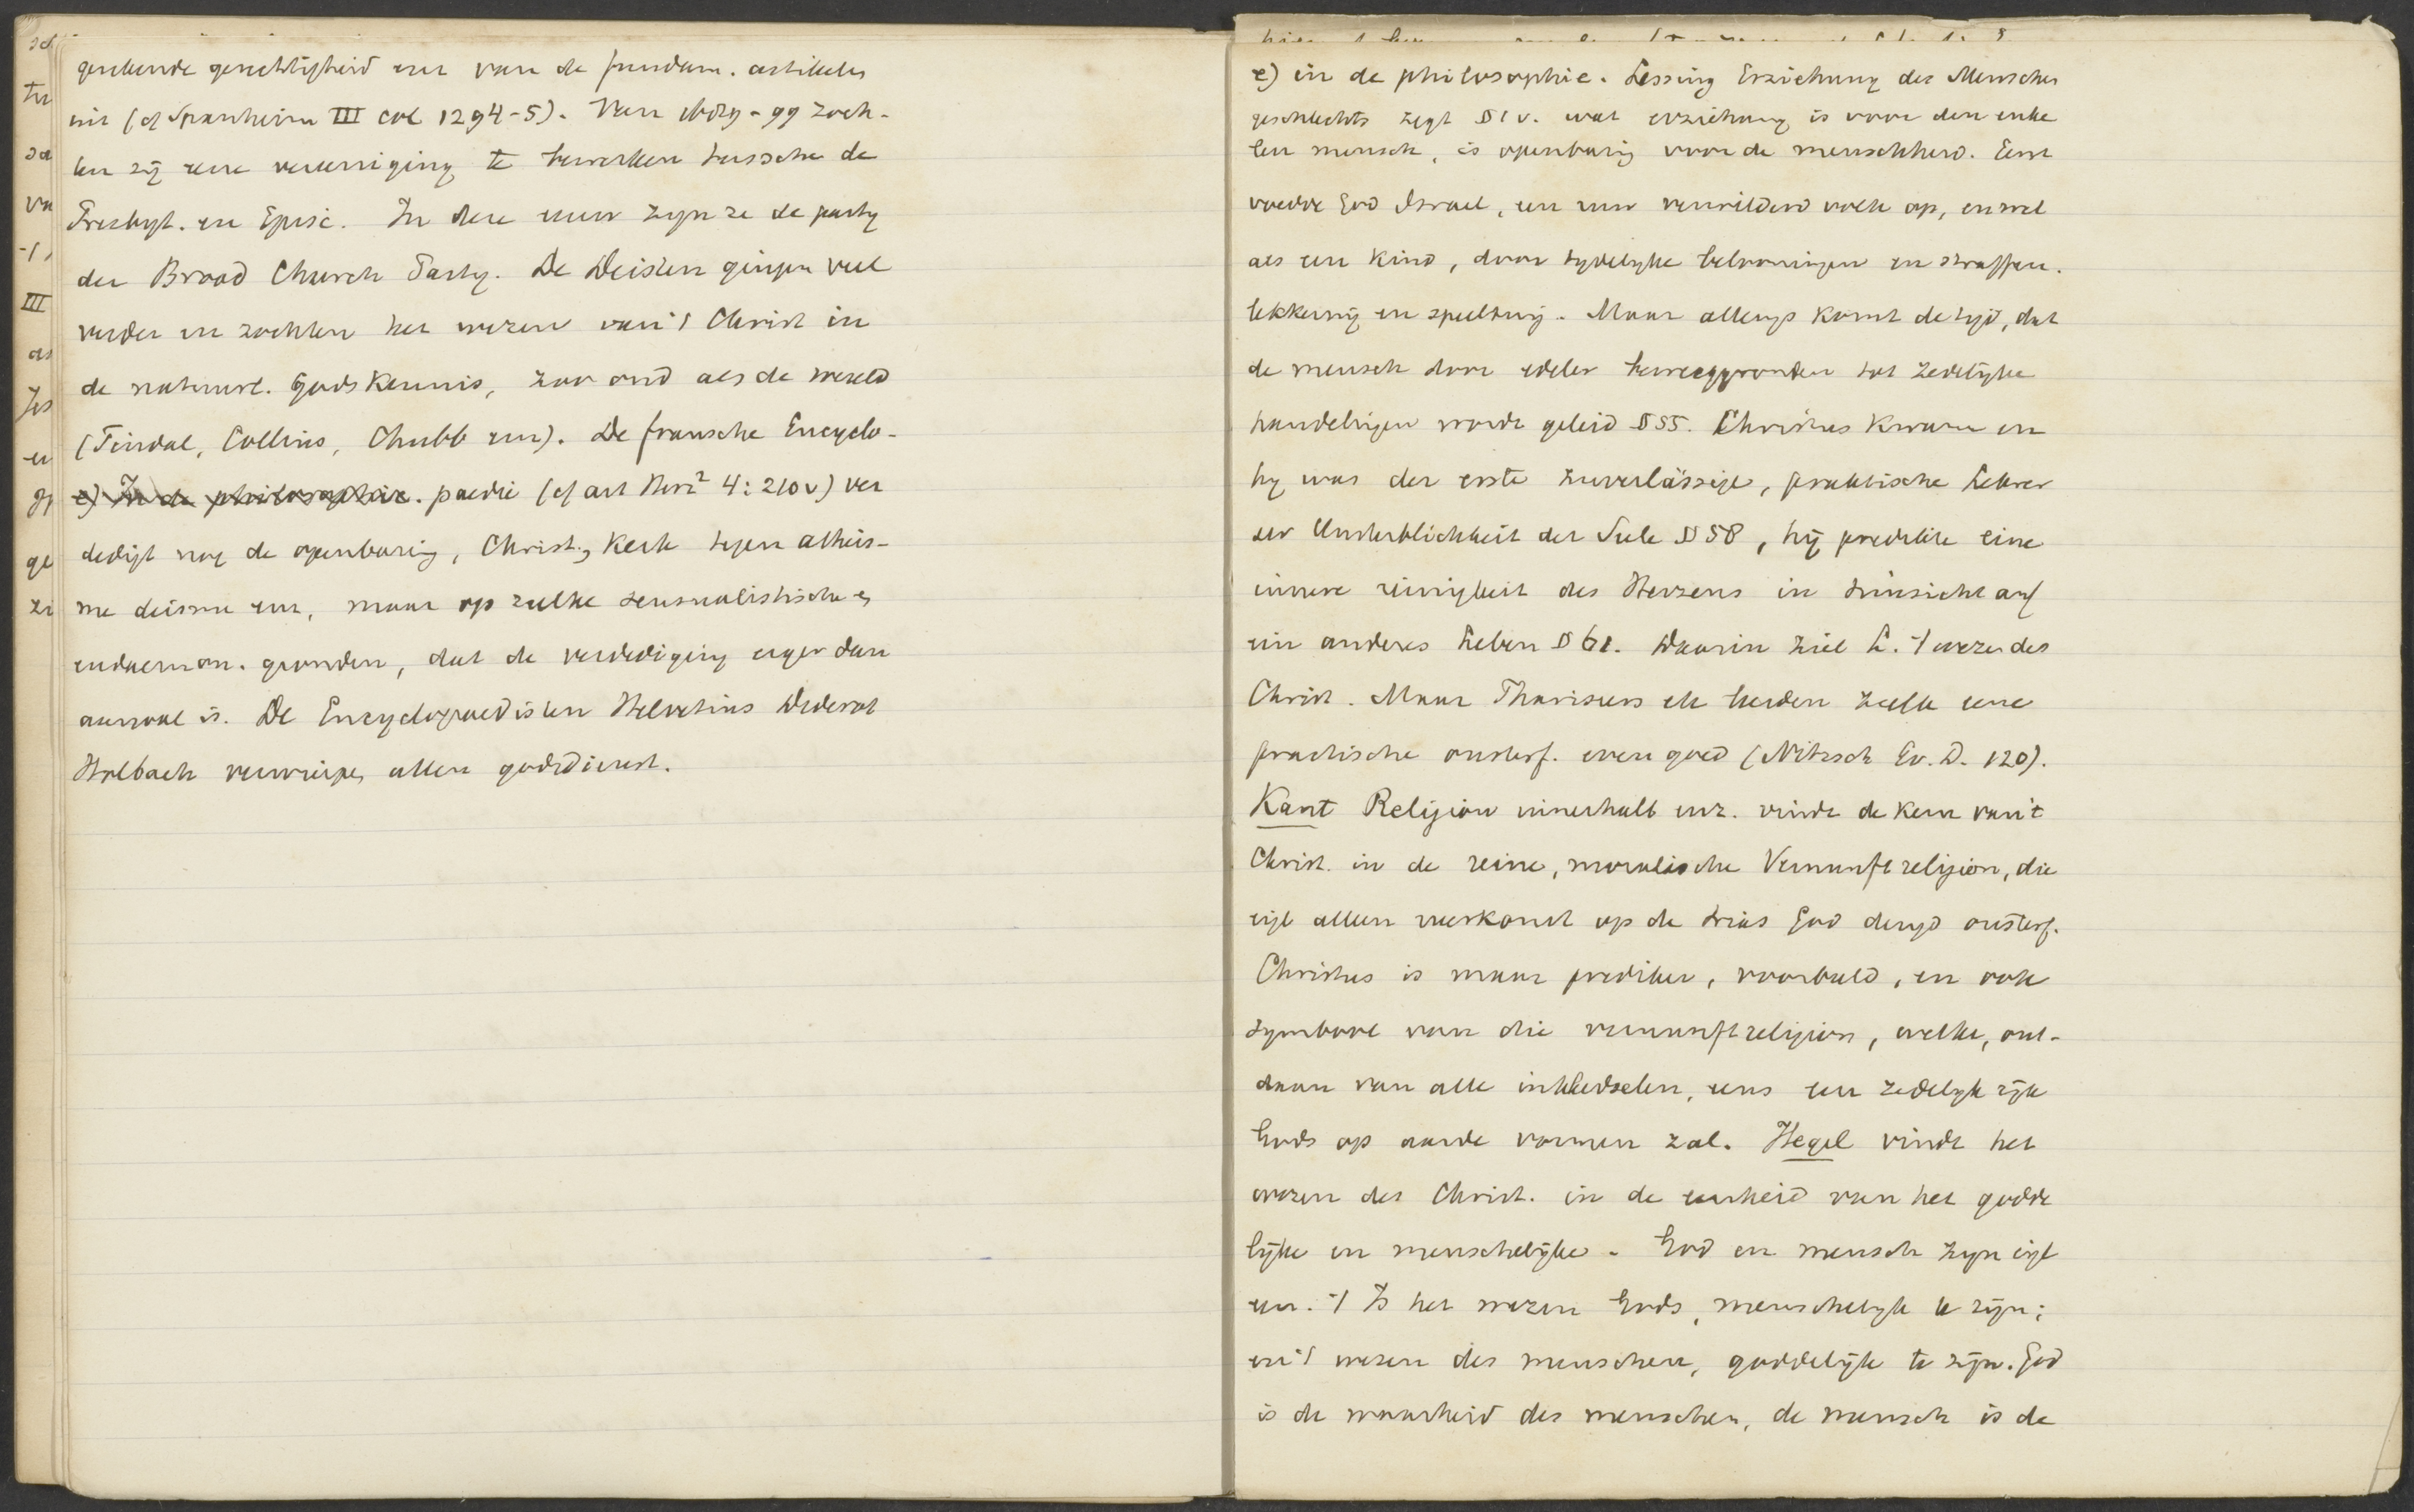 gerechtigheid enz van de fundam. artikelen
uit (cf Spanheim III col 1294-5). Van 1689-99 zoch-
ten zij eene vereeniging te bewerken tusschen de
Presbyt. en Episc. In deze eeuw zyn ze de party
der Broad Church Party. De Deisten gingen veel
verder en zochten het wezen van 't Christ in
de natuurl. Godskennis, zoo oud als de wereld
(Tindal, Collins, Chubb enz). De fransche Encyclo-
e) In de philosophie. paedie (cf art Herz² 4:210v) ver
dedigt nog de openbaring, Christ., Kerk tegen atheis-
me deisme enz, maar op zulke sensualistische
eudaemon. gronden, dat de verdediging erger dan
aanval is. De Encyclopaedisten Helvetius Diderot
Holbach verwierpen allen godsdienst.
e) in de philosophie. Lessing Erziehung des Menschen
geschlechts zegt §1v. wat erziehung is voor den enke
len mensch, is openbaring voor de menschheid. Eerst
voedde God Israel, een ruw verwilderd volk op, en wel
als een kind, door tydelyke belooningen en straffen.
lekkernij en speeltuig. Maar allengs komt de tyd, dat
de mensch door edeler beweeggronden tot zedelijke
handelingen wordt geleid §55. Christus kwam en
hy was der erste zuverlässige, praktische Lehrer
der Unsterblichkeit der Seele §58, hij predikte eine
innere reinigkeit des Herzens in hinsicht auf
ein anderes Leben §61. Daarin ziet L. 't wezen des
Christ. Maar Pharizeers en heiden hadden eene
practische onsterf. even goed (Nitzsch Ev. D. 120).
Kant Religion innerhalb enz. vindt de kern van 't
Christ. in de reine, moralische Vernunftreligion, die
eigl alleen neerkomt op de trias God deugd onsterf.
Christus is maar prediker, voorbeeld, en ook
symbool van die vernunftreligion, welke, ont-
daan van alle inkleedselen, eens een zedelyk rijk
Gods op aarde vormen zal. Hegel vindt het
wezen des Christ. in de eenheid van het godde
lijke en menschelijke. God en mensch zyn eigl
een. 't Is het wezen Gods, menschelyk te zijn;
en 't wezen des menschen, goddelijk te zijn. God
is de waarheid des menschen, de mensch is de